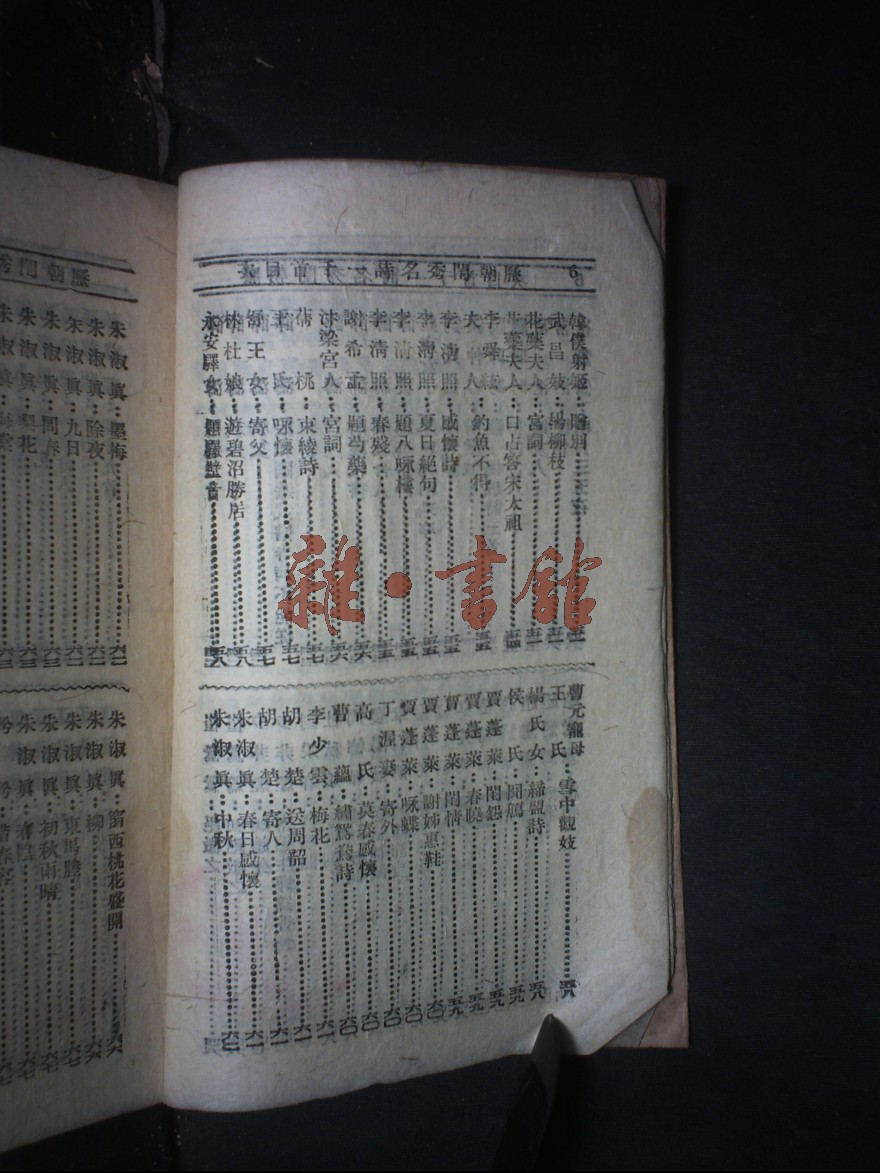 歷朝閨秀名詩一千首目錄
6
韓僕射姬:贈別
武昌妓:楊柳枝
花蘂夫人:宮詞
花蘂夫人:口占答宋太祖
李舜絃夫人:釣魚不得
李清照:感懷詩
李清照:夏日絕句
李清照:題八咏樓
李清照:春殘
謝希孟:題芍藥
汴梁宮人:宮詞
蒨桃:束綾詩
王氏:咏懷
舒王女:寄父
林杜娘:遊碧沼勝居
永安驛女:題壁
曹元寵母王氏:雪中觀妓
楊氏女:締盟詩
侯氏:聞鴈
賈蓬萊:閨怨
賈蓬萊:春曉
賈蓬萊:閨情
賈蓬萊:謝姊惠鞋
賈蓬萊:咏蝶
丁渥妻:寄外
高氏:莫春感懷
曹蘊:繡鴛鴦詩
李少雲:梅花
胡楚:送周韶
胡楚:寄人
朱淑眞:春日感懷
朱淑眞:中秋
歷朝閨秀
朱淑眞:墨梅
朱淑眞:除夜
朱淑眞:九日
朱淑眞
朱淑眞:梨花
朱淑眞:海棠
朱淑眞:窗西桃花盛開
朱淑眞:柳
朱淑眞:東馬塍
朱淑眞:初秋雨晴
朱淑眞
雜·書館